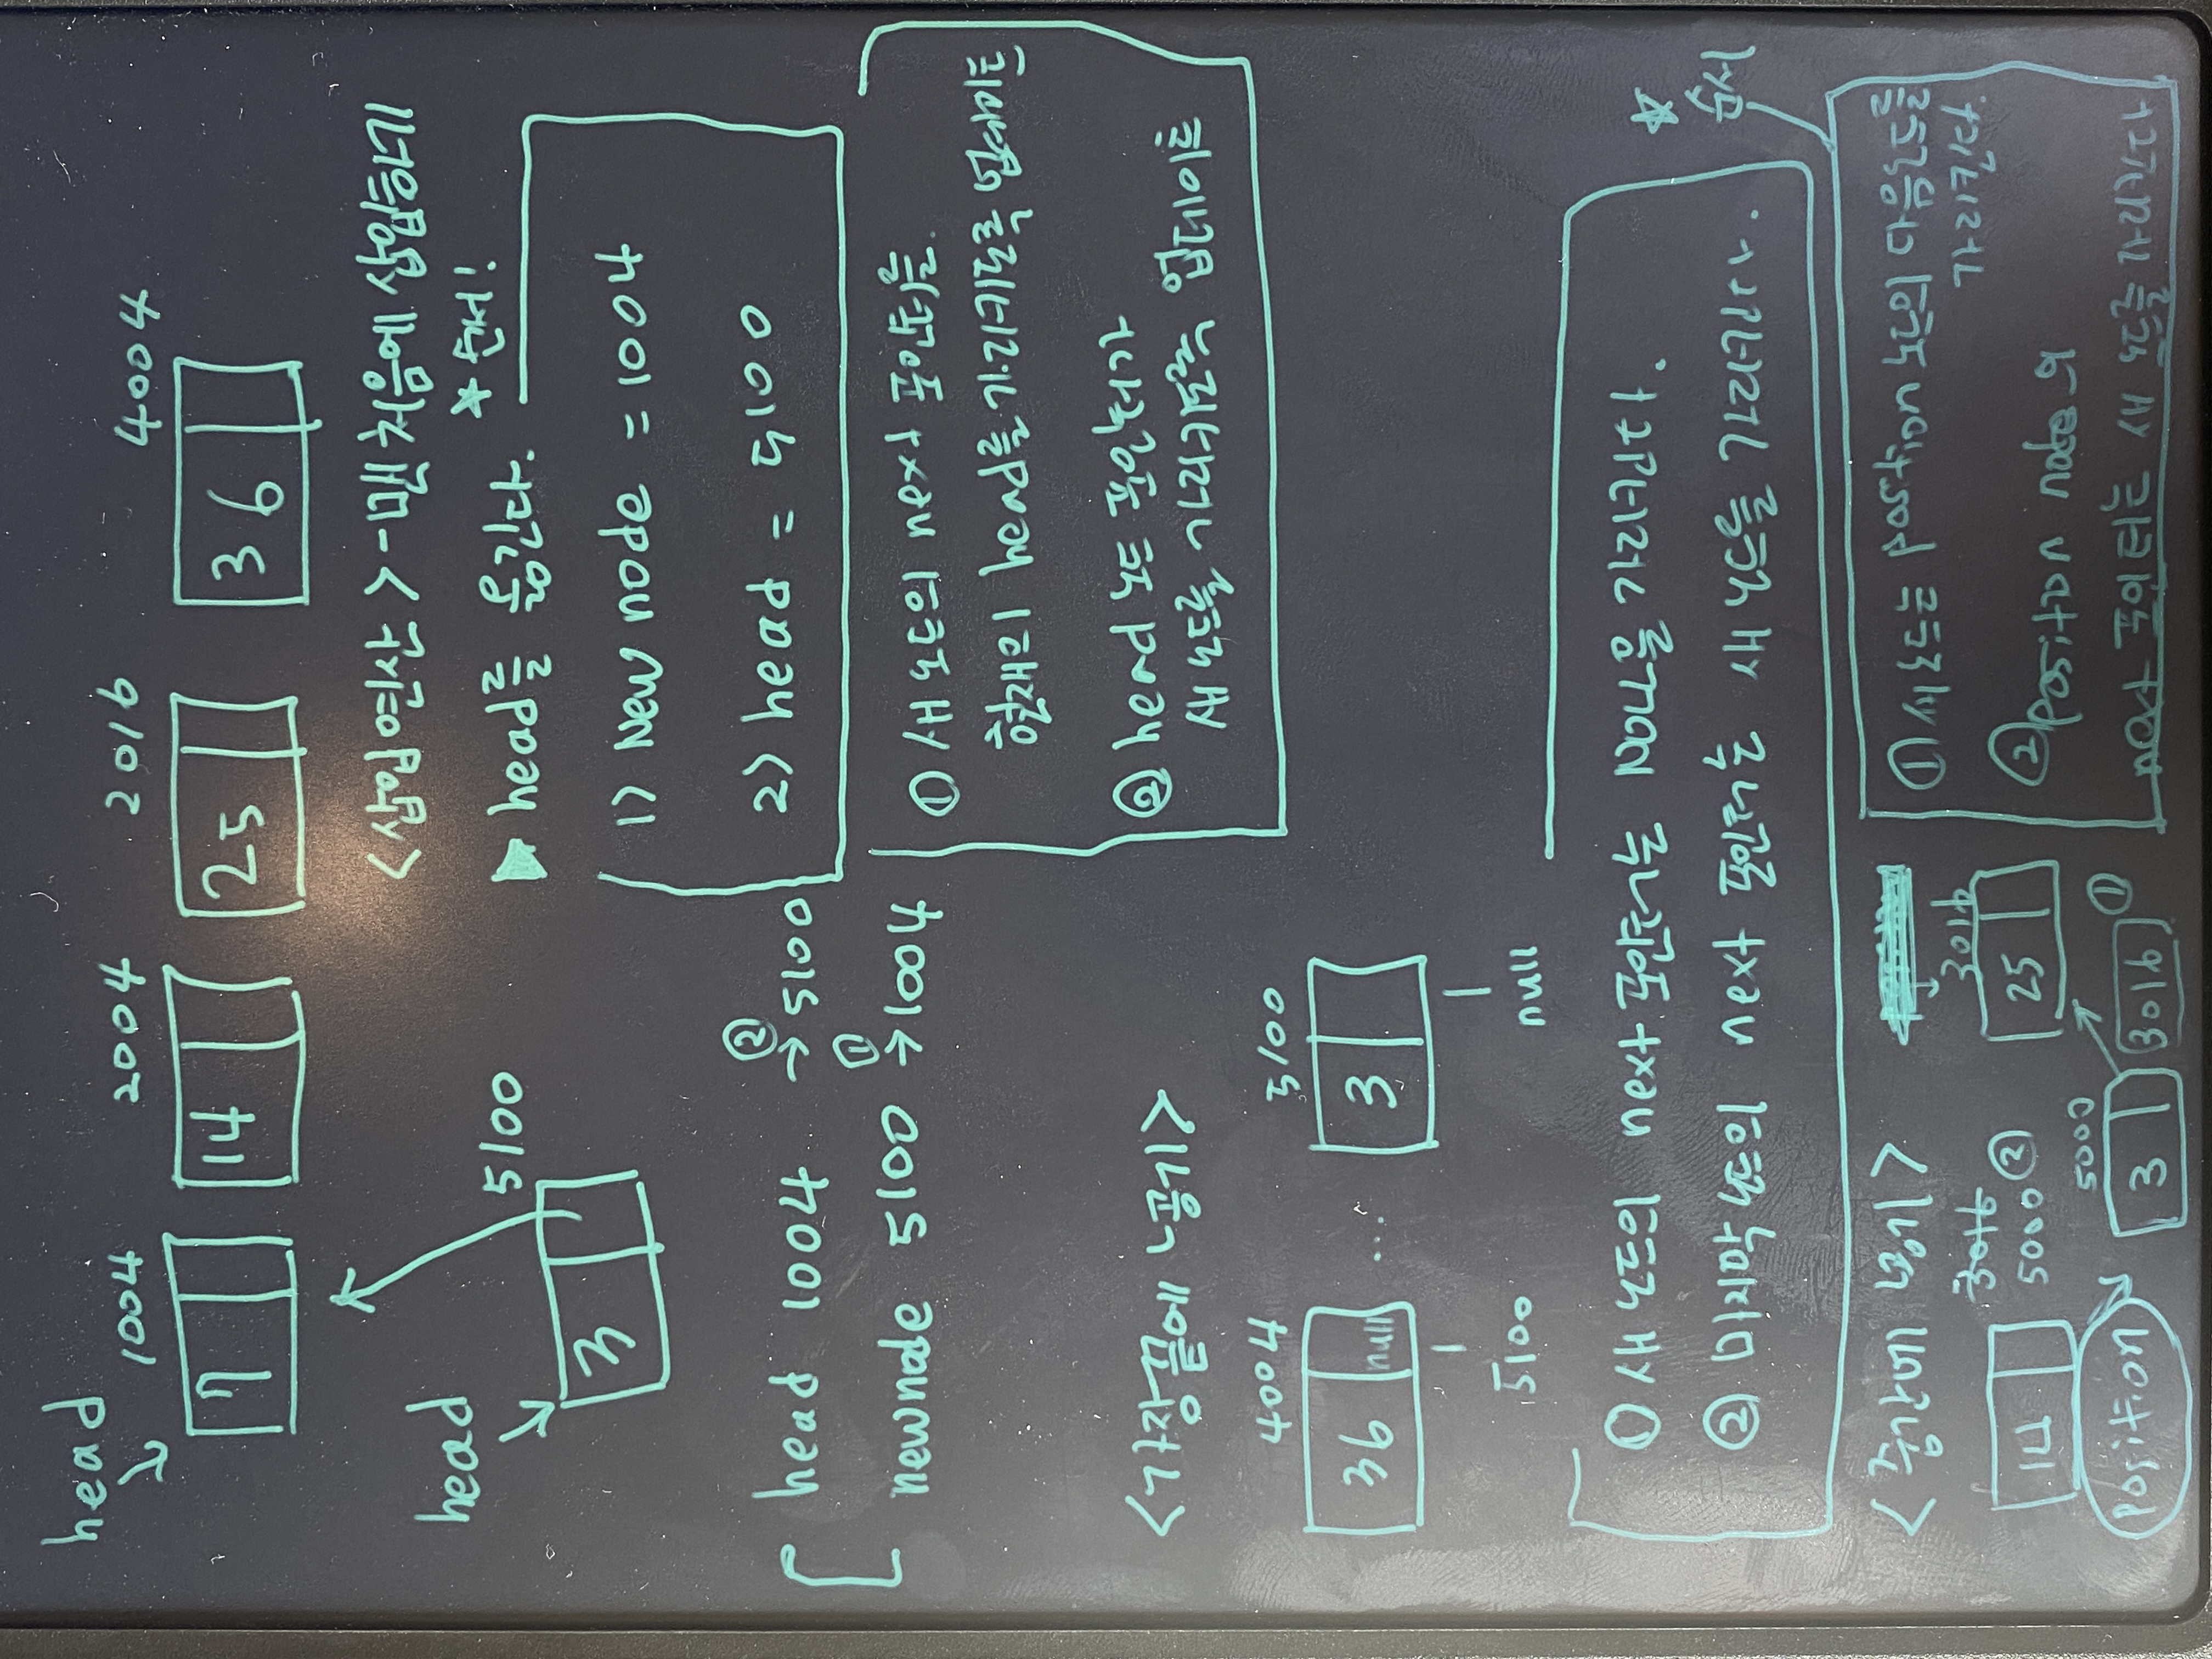 head
1004 2004 2016 4004
7 14 25 36
<삽입 연산> - 맨 처음에 삽입하기
head
5100
3
▶ head를 옮긴다. ☆ 순서!
1) New node = 1004
2) head = 5100
head 1004 ② → 5100
newnode 5100 ① → 1004
① 새 노드의 next 포인터를
현재의 head를 가리키도록 업데이트
② head 노드 포인터가
새 노드를 가리키도록 업데이트
<가장 끝에 넣기>
4004 5100
36 null ... 3
5100 null
① 새 노드의 next 포인터는 NULL을 가리킨다.
② 마지막 노드의 next 포인터는 새 노드를 가리킨다.
☆ 순서
<중간에 넣기>
3016 3016
14 5000 ② 25
position
5000
3 3016 ①
① 새 노드는 position 노드의 다음노드를
가리킨다.
② position node의
next 포인터는 새 노드를 가리킨다